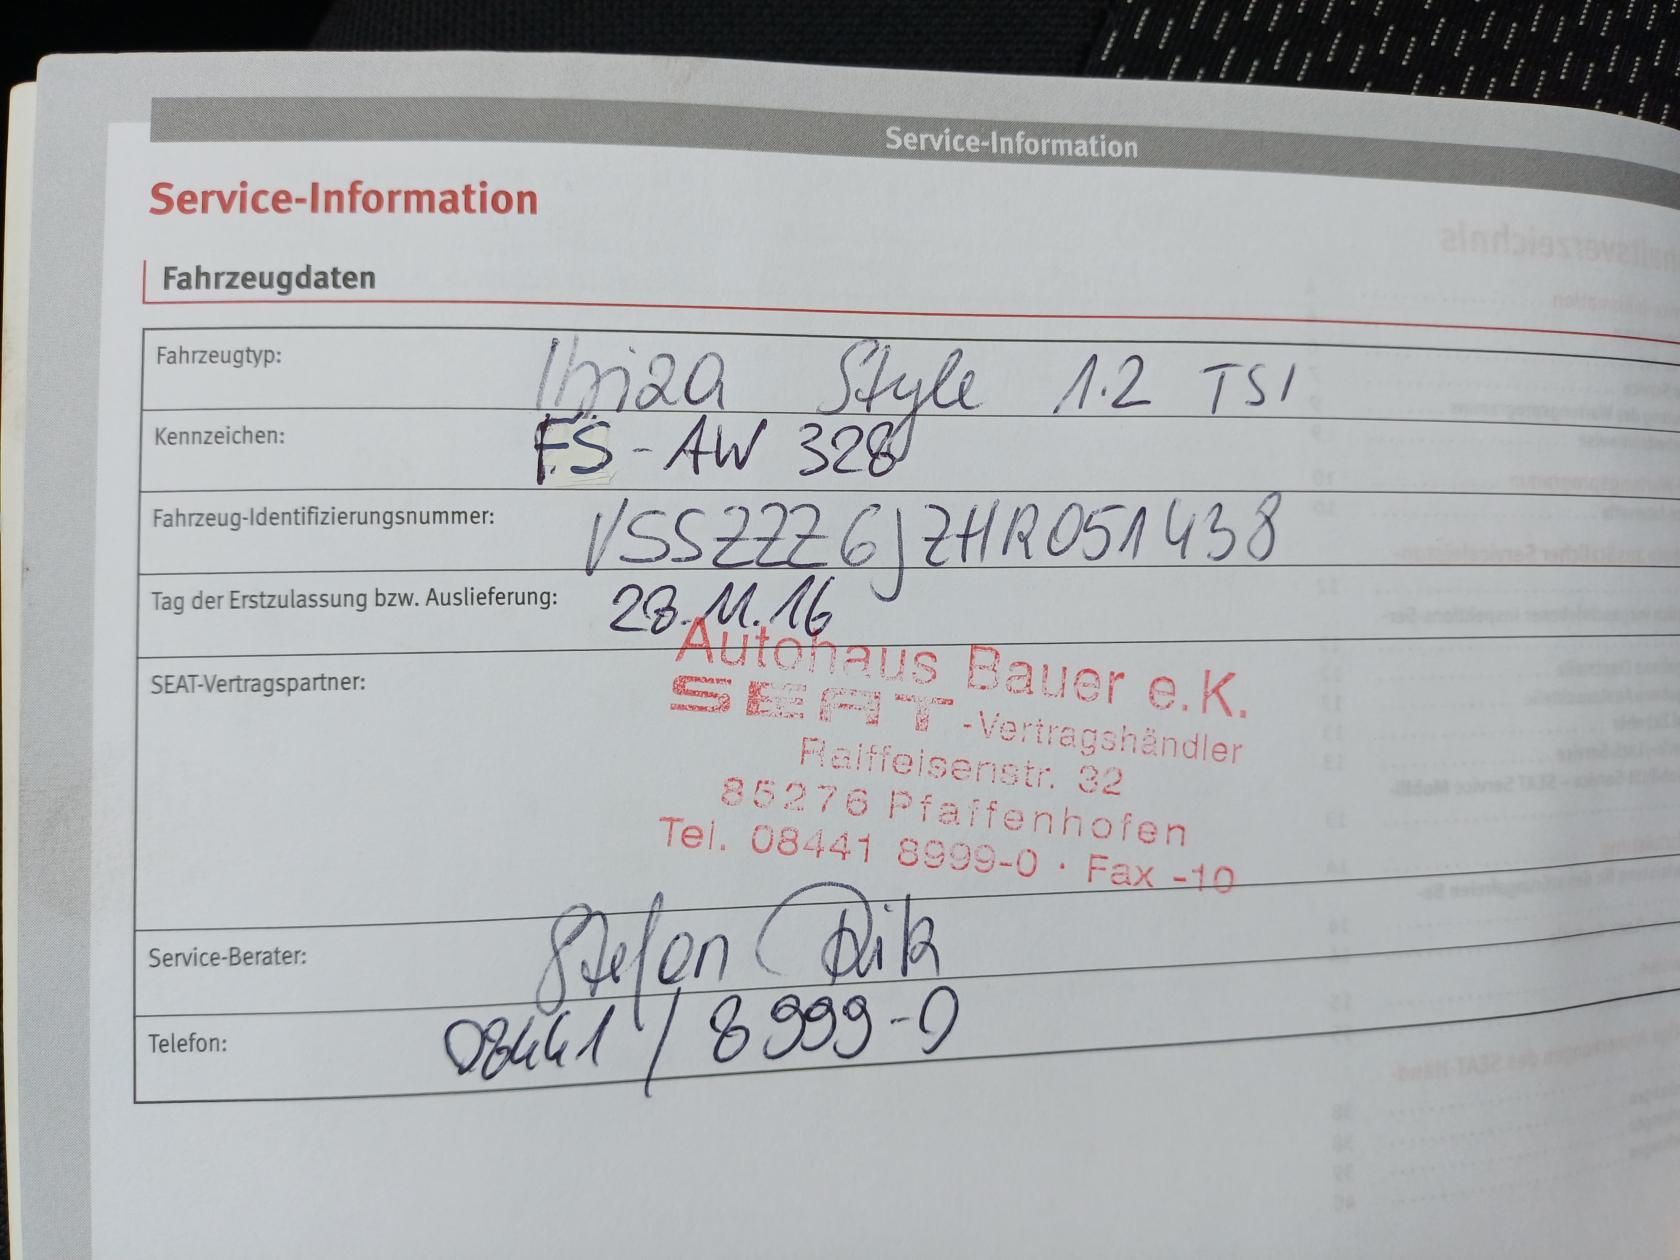 Service-Information
Service-Information
Fahrzeugdaten
Fahrzeugtyp: Ibiza Style 1.2 TSI
Kennzeichen: FS - AW 328
Fahrzeug-Identifizierungsnummer: VSSZZZ6JZHR051438
Tag der Erstzulassung bzw. Auslieferung: 28.11.16
SEAT-Vertragspartner:
Autohaus Bauer e.K.
SEAT -Vertragshändler
Raiffeisenstr. 32
85276 Pfaffenhofen
Tel. 08441 8999-0 · Fax -10
Service-Berater: Stefan
Telefon: 08441 / 8999-0